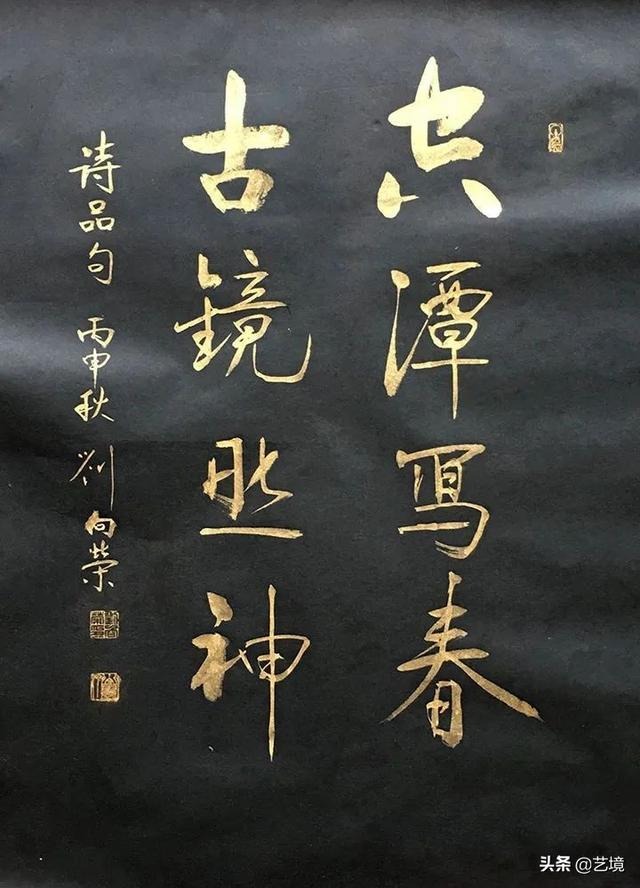 空潭寫春
古鏡照神
诗品句 丙申秋 刘向榮
头条 @艺境